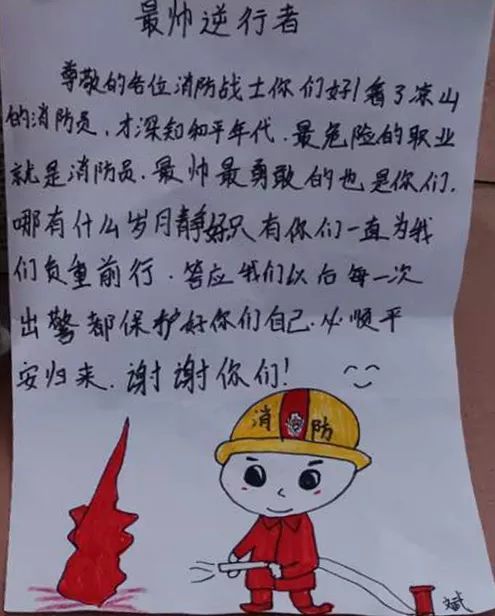 最帅逆行者
尊敬的各位消防战士你们好!看了凉山
的消防员,才深知和平年代.最危险的职业
就是消防员.最帅最勇敢的也是你们.
哪有什么岁月静好只有你们一直为我
们负重前行.答应我们以后每一次
出警都保护好你们自己.必顺平
安归来.谢谢你们!
消 防
斌